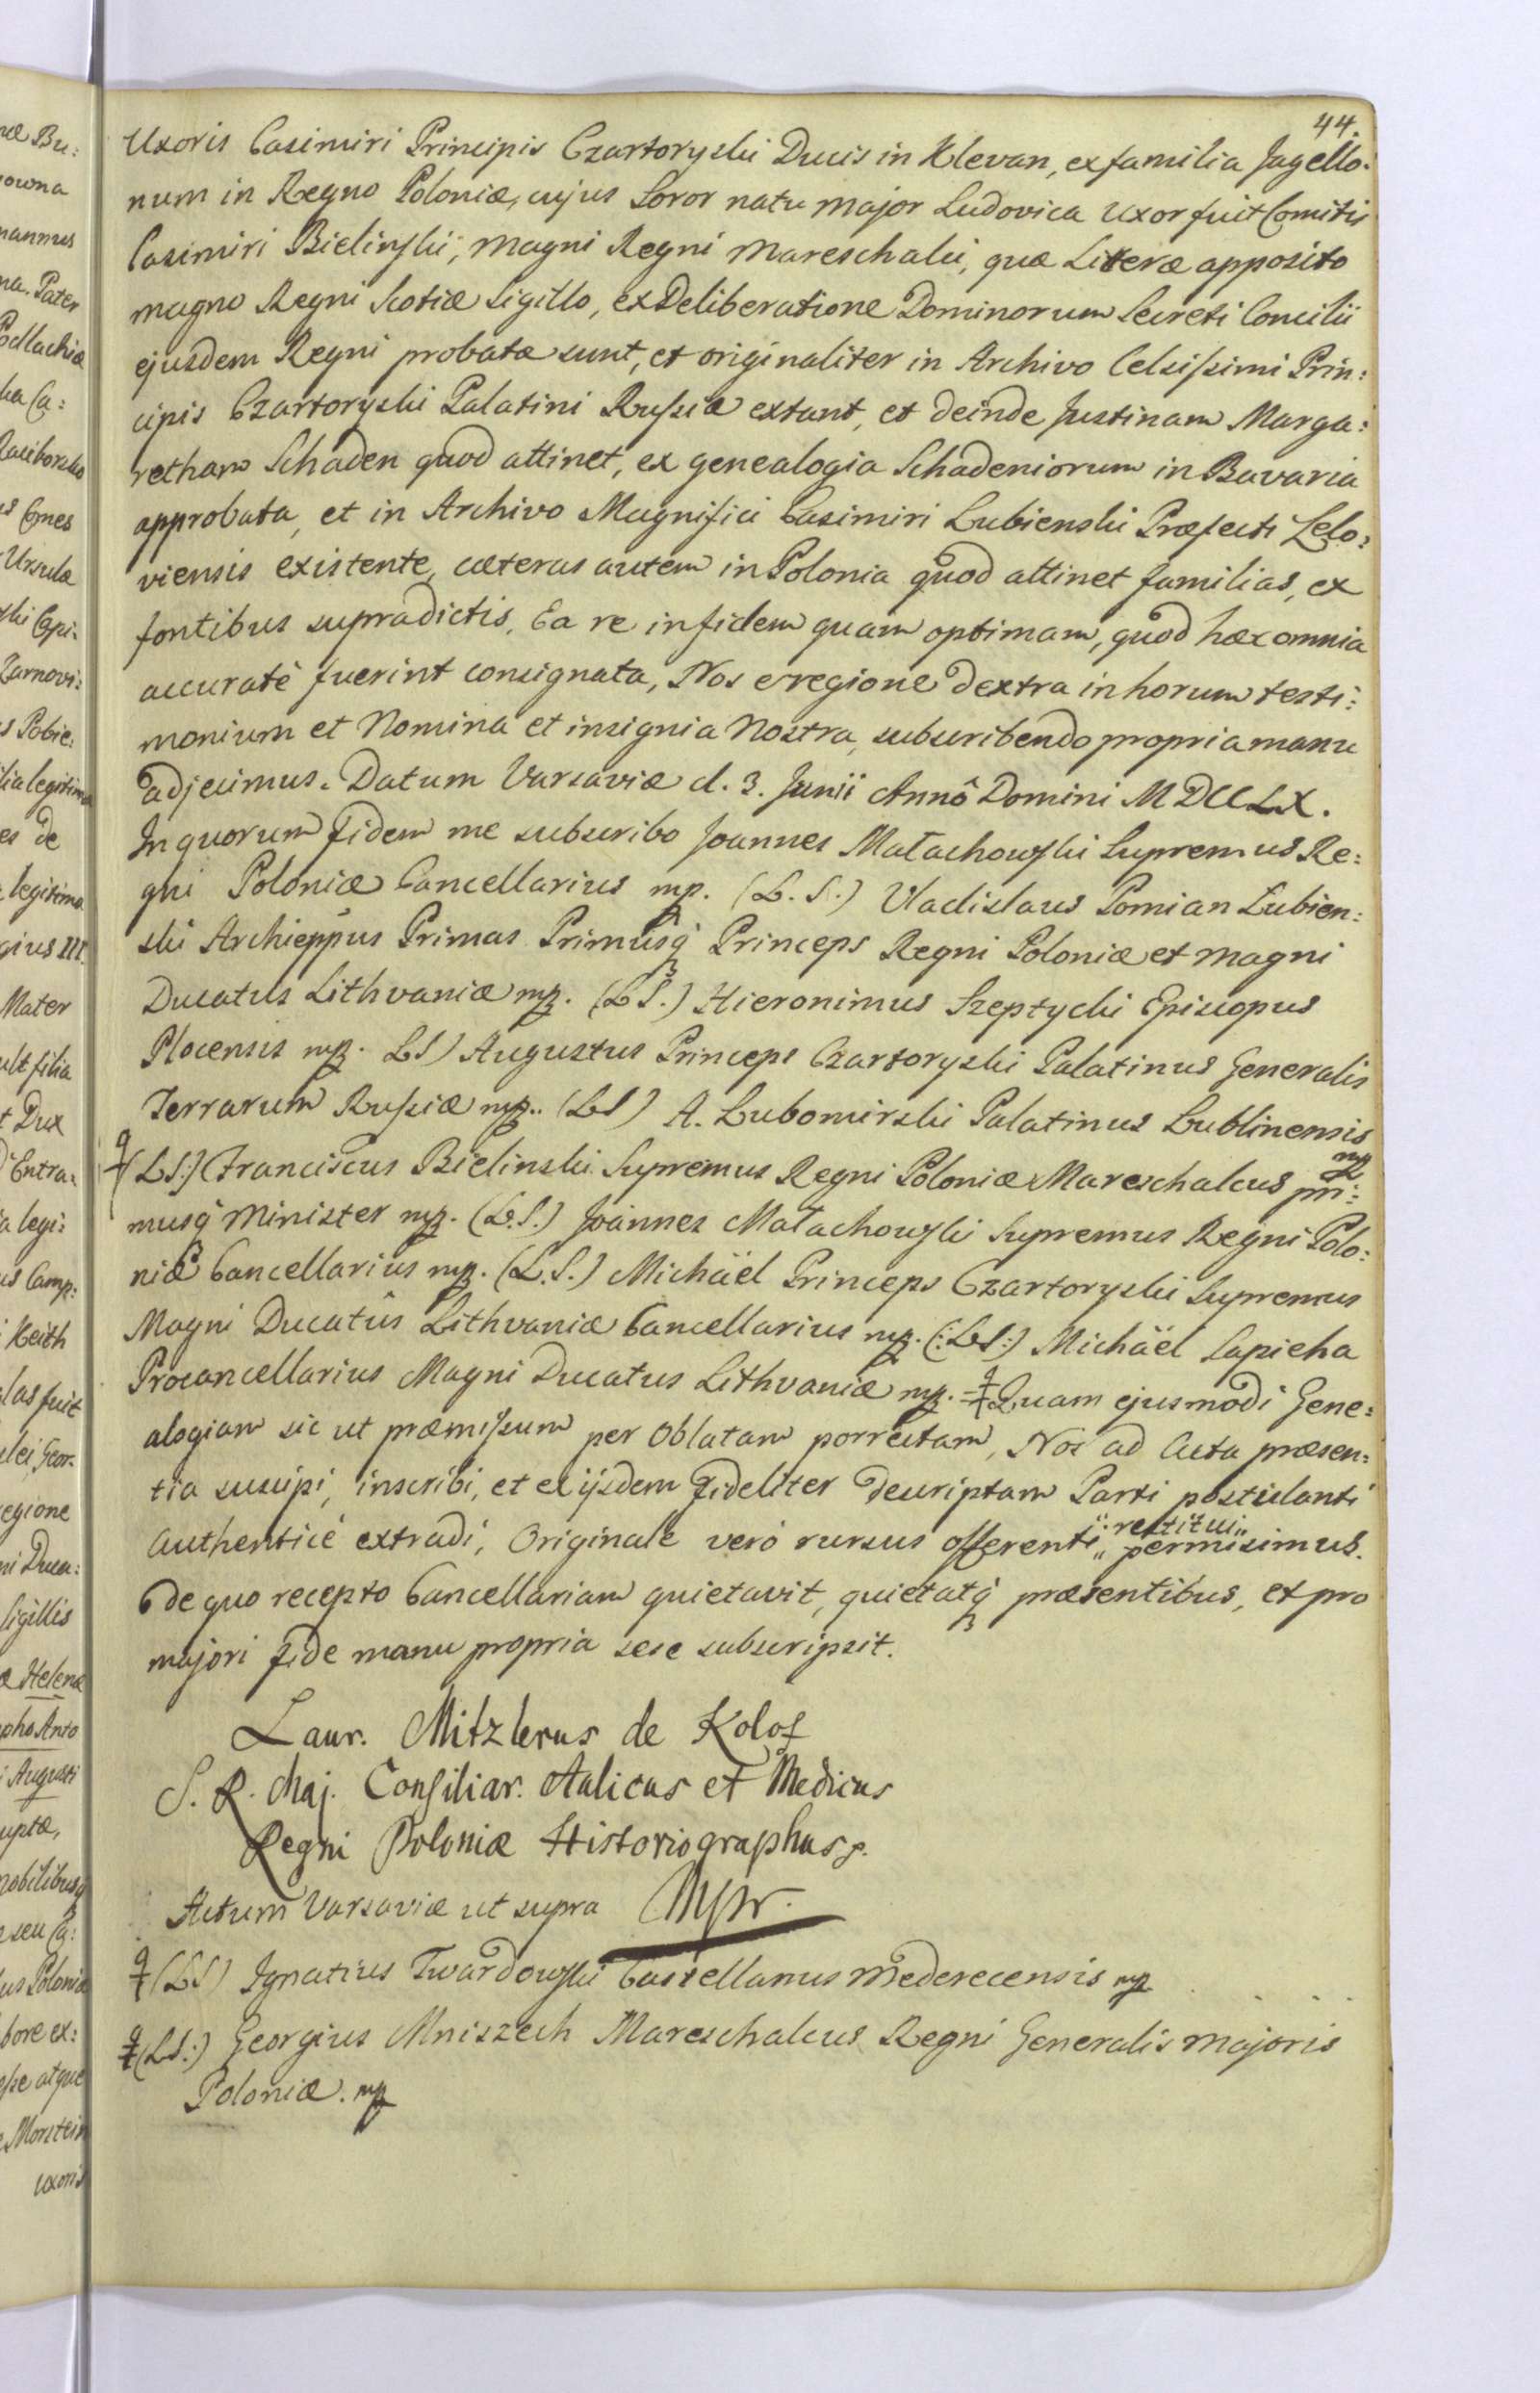 44.
Uxoris Casimiri Principis Czartoryski Ducis in Klevan, ex familia Jagello:
num in Regno Poloniæ, cujus Soror natu major Ludovica Uxor fuit Comitis
Casimiri Bielinski, Magni Regni Mareschalci, quæ Literæ apposito
magno Regni Scotiæ Sigillo, ex Deliberatione Dominorum Secreti Concilii
ejusdem Regni probatæ sunt, et originaliter in Archivo Celsissimi Prin:
cipis Czartoryski Palatini Russiæ extant, et deinde Justinam Marga:
retham Schaden quod attinet, ex genealogia Schadeniorum in Bavaria
approbata, et in Archivo Magnifici Casimiri Lubienski Præfecti Lelo:
viensis existente, cæteras autem in Polonia quod attinet familias, ex
fontibus supradictis, Ea re in fidem quam optimam, quod hæc omnia
accuratè fuerint consignata, Nos e regione dextra in horum testi:
monium et Nomina et insignia Nostra, subscribendo propria manu
adjecimus. Datum Varsaviæ d. 3. Junii Annô Domini MDCCLX.
In quorum fidem me subscribo Joannes Małachowski Supremus Re:
gni Poloniæ Cancellarius mp. (L. S.) Vladislaus Pomian Łubien:
ski Archieppus Primas Primusq Princeps Regni Poloniæ et Magni
Ducatus Lithvaniæ mp. (LS.) Hieronimus Szeptycki Episcopus
Plocensis mp. LS) Augustus Princeps Czartoryski Palatinus Generalis
Terrarum Russiæ mp.. (LS) A. Lubomirski Palatinus Lublinensis mp
(LS:) Franciscus Bielinski Supremus Regni Poloniæ Mareschalcus pri:
musq Minister mp. (L.S.) Joannes Małachowski Supremus Regni Polo:
niæ Cancellarius mp. (L.S.) Michäel Princeps Czartoryski Supremus
Magni Ducatûs Lithvaniæ Cancellarius mp. (:LS:) Michäel Sapieha
Procancellarius Magni Ducatus Lithvaniæ mp. Quam ejusmodi Gene:
alogiam sic ut præmissum per Oblatam porrectam, Nos ad Acta præsen:
tia suscipi, inscribi, et ex ijsdem fideliter descriptam Parti postulanti
authenticè extradi, Originale verò rursus offerenti restitui permisimus.
de quo recepto Cancellariam quietavit, quietatq præsentibus, et pro
majori fide manu propria sese subscripsit.
Laur. Mitzlerus de Kolof
S. R. Maj. Consiliar. Aulicus et Medicus
Regni Poloniæ Historiographus
Actum Varsaviæ ut supra Mpr.
(LS) Ignatius Twardowski Castellanus Mederecensis mp
(LS:) Georgius Mniszech Mareschalcus Regni Generalis Majoris
Poloniæ. mp